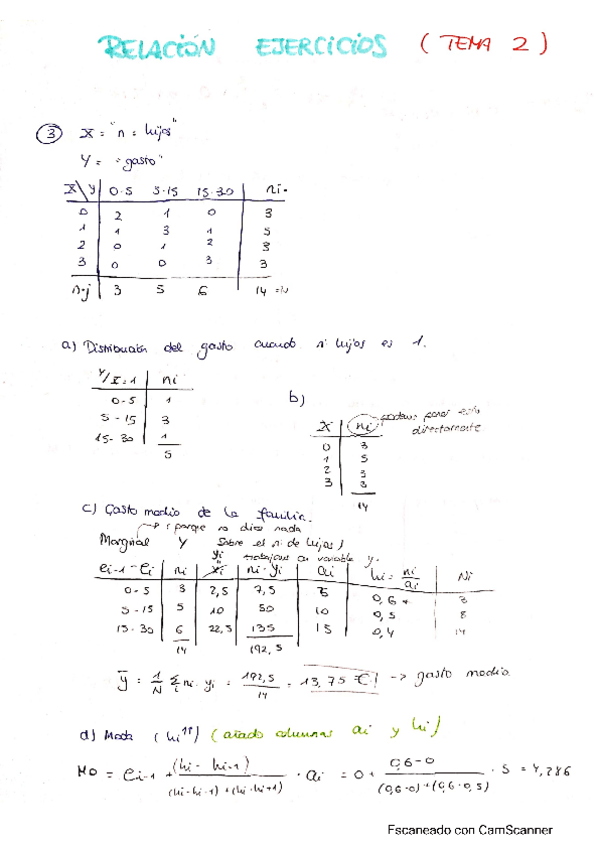 RELACIÓN EJERCICIOS (TEMA 2)
3 X = "n = hijos"
Y = "gasto"
X\Y 0-5 5-15 15-30 ni·
0 2 1 0 3
1 1 3 1 5
2 0 1 2 3
3 0 0 3 3
n·j 3 5 6 14 =N
a) Distribución del gasto cuando nº hijos es 1.
Y/X=1 ni
0-5 1
5-15 3
15-30 1
5
b)
podemos poner esto directamente
X ni
0 3
1 5
2 3
3 3
14
c) Gasto medio de la familia.
porque no dice nada
Marginal Y sobre el nº de hijos)
trabajamos con variable y.
ei-1 - ei ni yi ni·yi ai hi = ni/ai Ni
0-5 3 2,5 7,5 5 0,6 3
5-15 5 10 50 10 0,5 8
15-30 6 22,5 135 15 0,4 14
14 192,5
y = 1/N Σi ni·yi = 192,5/14 = 13,75 € -> gasto medio
d) Moda (hi) (añado columnas ai y hi)
MO = ei-1 + (hi - hi-1) / (hi-hi-1)+(hi-hi+1) · ai = 0 + 0,6-0 / (0,6-0)+(0,6-0,5) · 5 = 4,286
Escaneado con CamScanner